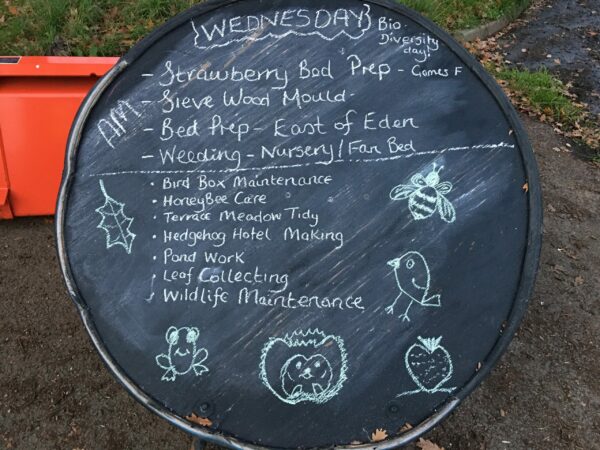 {WEDNESDAY}
Bio-
Diversity
day!
AM
- Strawberry Bed Prep - Games F
- Sieve Wood Mould -
- Bed Prep - East of Eden
- Weeding - Nursery/Fan Bed
• Bird Box Maintenance
• HoneyBee Care
• Terrace Meadow Tidy
• Hedgehog Hotel Making
• Pond Work
• Leaf Collecting
• Wildlife Maintenance